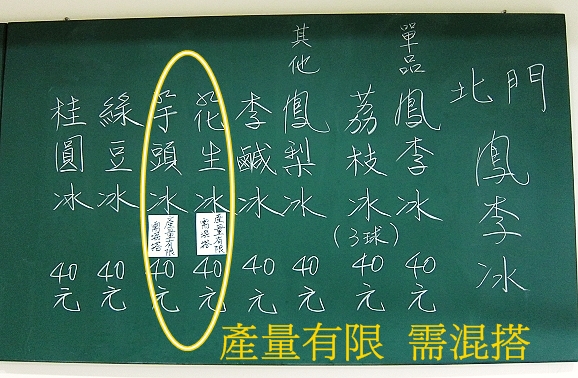 北門
鳳李冰
單品
鳳李冰
40元
荔枝冰
(3球)
40元
其他
鳳梨冰
40元
李鹹冰
40元
花生冰
產量有限
需混搭
40元
芋頭冰
產量有限
需混搭
40元
綠豆冰
40元
桂圓冰
40元
產量有限 需混搭